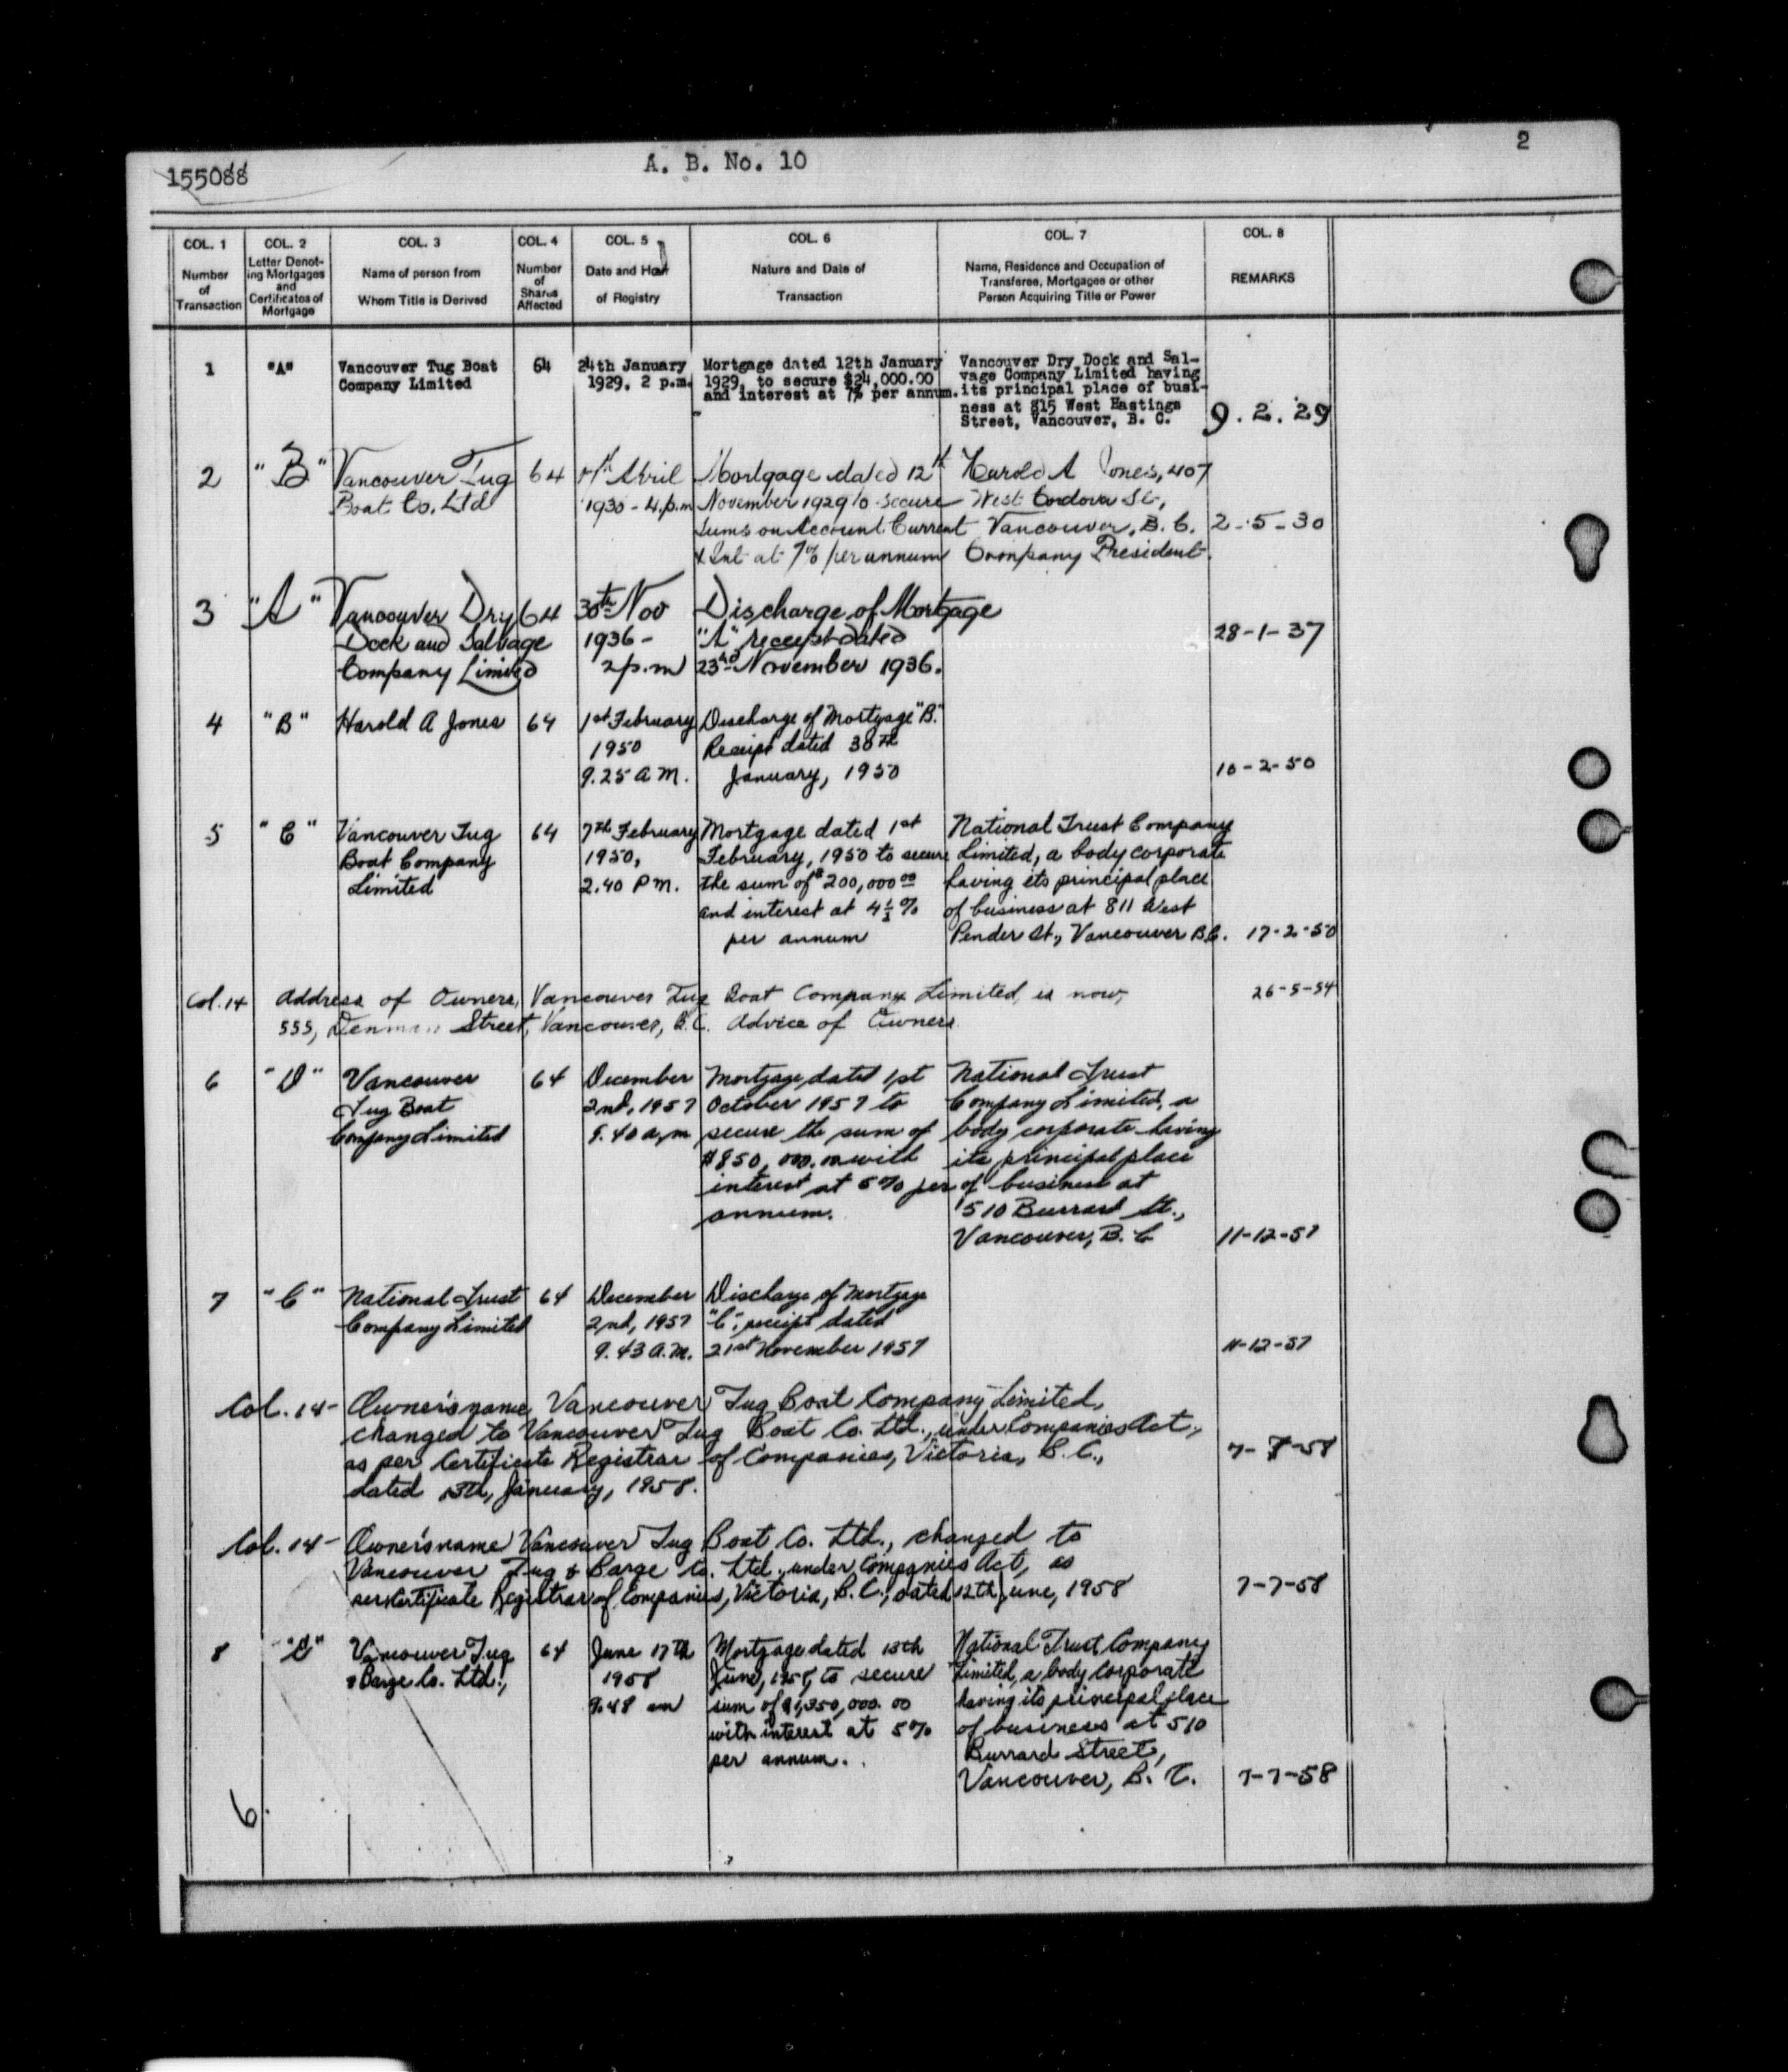 155088
A. B. No. 10
2
COL. 1
Number
of
Transaction
COL. 2
Letter Denot-
ing Mortgages
and
Certificates of
Mortgage
COL. 3
Name of person from
Whom Title is Derived
COL. 4
Number
of
Shares
Affected
COL. 5
Date and Hour
of Registry
COL. 6
Nature and Date of
Transaction
COL. 7
Name, Residence and Occupation of
Transferee, Mortgagee or other
Person Acquiring Title or Power
COL. 8
REMARKS
1
"A"
Vancouver Tug Boat
Company Limited
64
24th January
1929, 2 p.m.
Mortgage dated 12th January
1929, to secure $24,000.00
and interest at 7% per annum.
Vancouver Dry Dock and Sal-
vage Company Limited having
its principal place of busi-
ness at 815 West Hastings
Street, Vancouver, B. C.
9.2.29
2
"B"
Vancouver Tug
Boat Co. Ltd
64
April
1930 - 4.p.m
Mortgage dated 12th
November 1929 to secure
Sums on Account Current
& Int at 7% per annum
Harold A Jones, 407
West Cordova St.,
Vancouver, B.C.
Company President.
2-5-30
3
"A"
Vancouver Dry
Dock and Salvage
Company Limited
64
30th Nov
1936 -
2 p.m
Discharge of Mortgage
"A" receipt dated
23rd November 1936.
28-1-37
4
"B"
Harold A Jones
64
1st February
1950
9.25 A.M.
Discharge of Mortgage "B".
Receipt dated 30th
January, 1950
10-2-50
5
"C"
Vancouver Tug
Boat Company
Limited
64
7th February
1950,
2.40 P.M.
Mortgage dated 1st
February, 1950 to secure
the sum of $200,000 00
and interest at 4½%
per annum
National Trust Company
Limited, a body corporate
having its principal place
of business at 811 West
Pender St., Vancouver B.C.
17-2-50
Col. 14 Address of Owners, Vancouver Tug Boat Company Limited, is now,
555, Denman Street, Vancouver, B.C. Advice of Owners.
26-5-54
6
"D"
Vancouver
Tug Boat
Company Limited
64
December
2nd, 1957
9.40 a.m
Mortgage dated 1st
October 1957 to
secure the sum of
$850,000.00 with
interest at 6% per
annum.
National Trust
Company Limited, a
body corporate having
its principal place
of business at
510 Burrard St.,
Vancouver, B.C
11-12-57
7
"C"
National Trust
Company Limited
64
December
2nd, 1957
9.43 A.M.
Discharge of Mortgage
"C", receipt dated
21st November 1957
11-12-57
Col. 14 - Owner's name Vancouver Tug Boat Company Limited,
changed to Vancouver Tug Boat Co. Ltd., under Companies Act,
as per Certificate Registrar of Companies, Victoria, B.C.,
dated 13th, January, 1958.
7-7-58
Col. 14 - Owner's name Vancouver Tug Boat Co. Ltd., changed to
Vancouver Tug & Barge Co. Ltd., under Companies Act, as
per Certificate Registrar of Companies, Victoria, B.C., dated 12th June, 1958
7-7-58
8
Vancouver Tug
& Barge Co. Ltd.,
64
June 17th
1958
9.48 am
Mortgage dated 13th
June, 1958, to secure
sum of $1,350,000.00
with interest at 5%
per annum.
National Trust Company
Limited, a body corporate
having its principal place
of business at 510
Burrard Street,
Vancouver, B.C.
7-7-58
6.